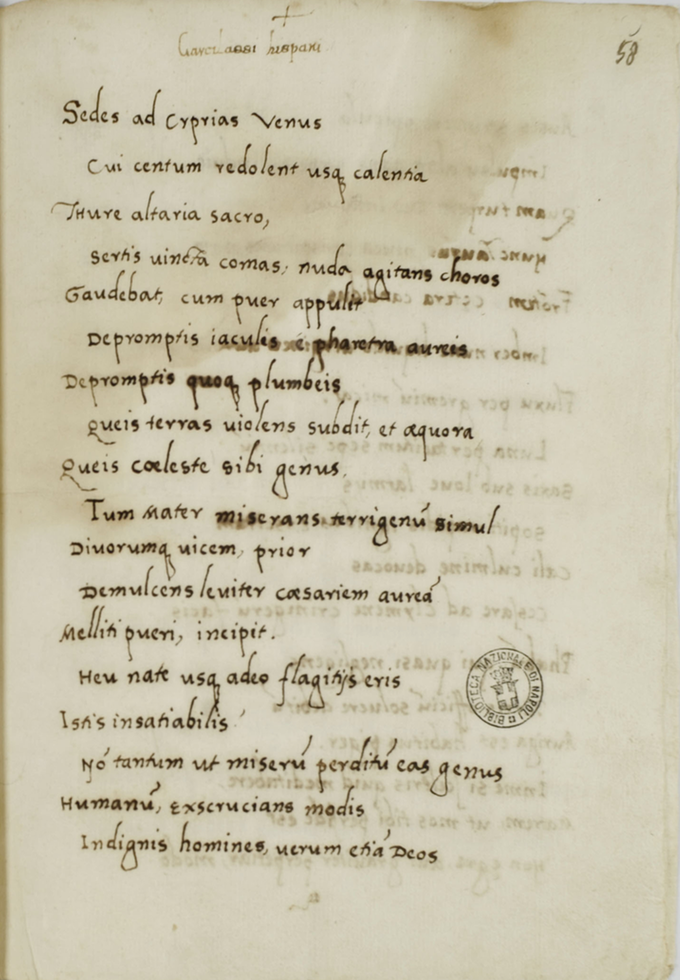 Garcilassi hispani
58
Sedes ad cyprias Venus
Cui centum redolent usq calentia
Thure altaria sacro,
Sertis uincta comas, nuda agitans choros
Gaudebat, cum puer appulit
Depromptis iaculis é pharetra aureis
Depromptis quoq plumbeis
Queis terras uiolens subdit, et æquora
Queis cæleste sibi genus.
Tum Mater miserans terrigenū simul
Diuorumq uicem, prior
Demulcens leuiter cæsariem aureā
Melliti pueri, incipit.
Heu nate usq adeo flagitijs eris
Istis insatiabilis
Nō tantum ut miserū perditū eas genus
Humanū, Exscrucians modis
Indignis homines, uerum etiā Deos
BIBLIOTECA NAZIONALE DI NAPOLI